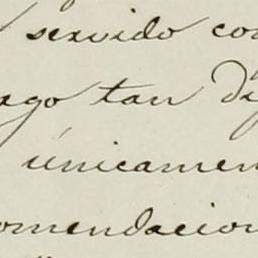 servido co
rgo tan di
únicamen
omendacion